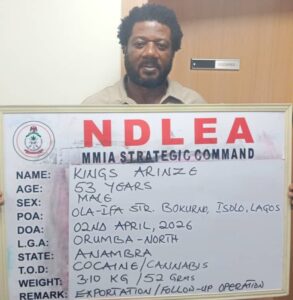 NDLEA
MMIA STRATEGIC COMMAND
NAME: KINGS ARINZE
AGE: 53 YEARS
SEX: MALE
POA: OLA-IFA STR. BOKURNO, ISOLO, LAGOS
DOA: 02ND APRIL, 2026
L.G.A: ORUMBA-NORTH
STATE: ANAMBRA
T.O.D: COCAINE/CANNABIS
WEIGHT: 3.10 KG/52 GRMS
REMARK: EXPORTATION/FOLLOW-UP OPERATION